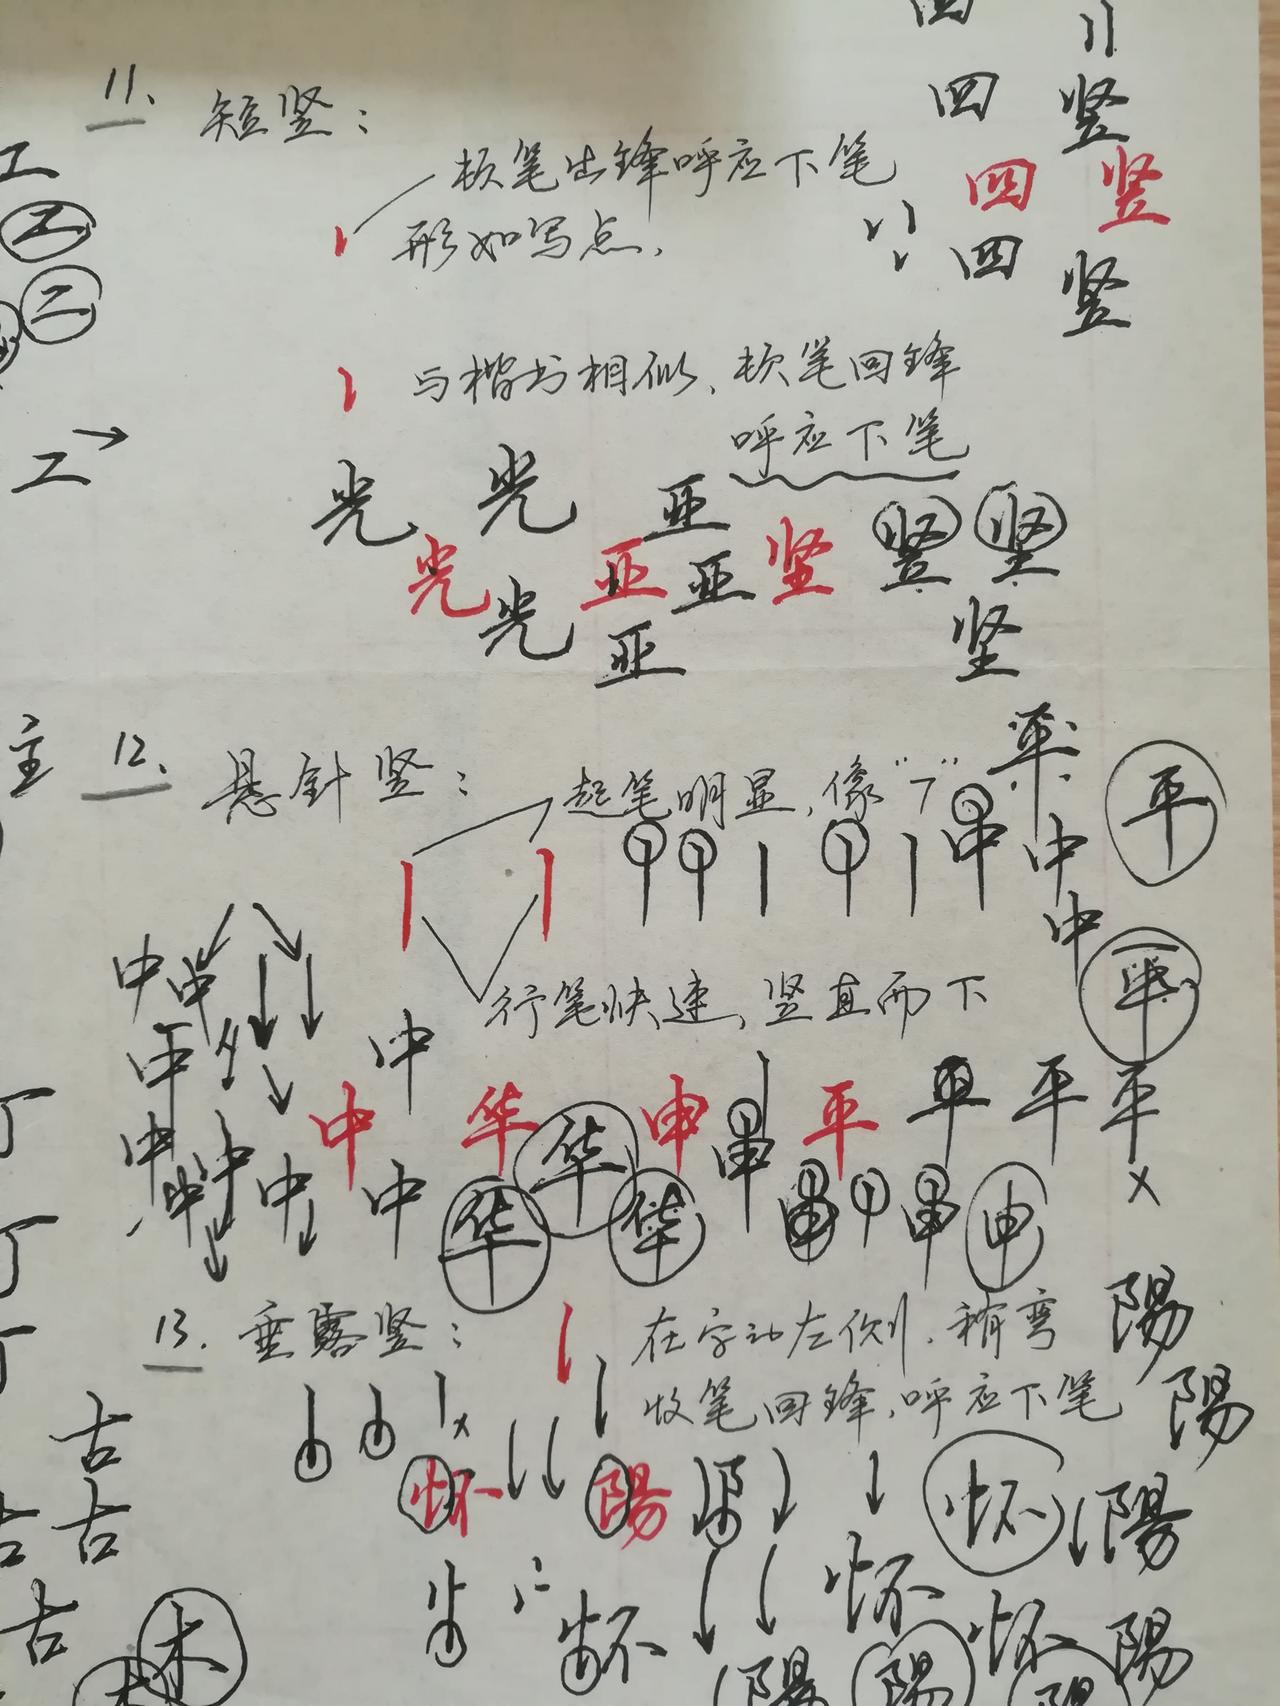 11. 短竖：
顿笔出锋呼应下笔
形如写点.
四
四 竖
四 竖
四 竖
与楷书相似、顿笔回锋
呼应下笔
工
工
二
工
光 光 亚
光 亚 坚 竖 坚
光 亚 坚
亚
主
12. 悬针竖：
起笔明显,像“7”
平 平
中
中
华
行笔快速,竖直而下
中 中 中
中 华 申 平 平 平 平
中 中 中 中
华 华 华 申 申 申
13. 垂露竖：
在字的左侧.稍弯
收笔回锋.呼应下笔
陽
陽
古
怀 陽 怀 陽
古
古
怀 怀 怀 陽
木
陽 陽 陽